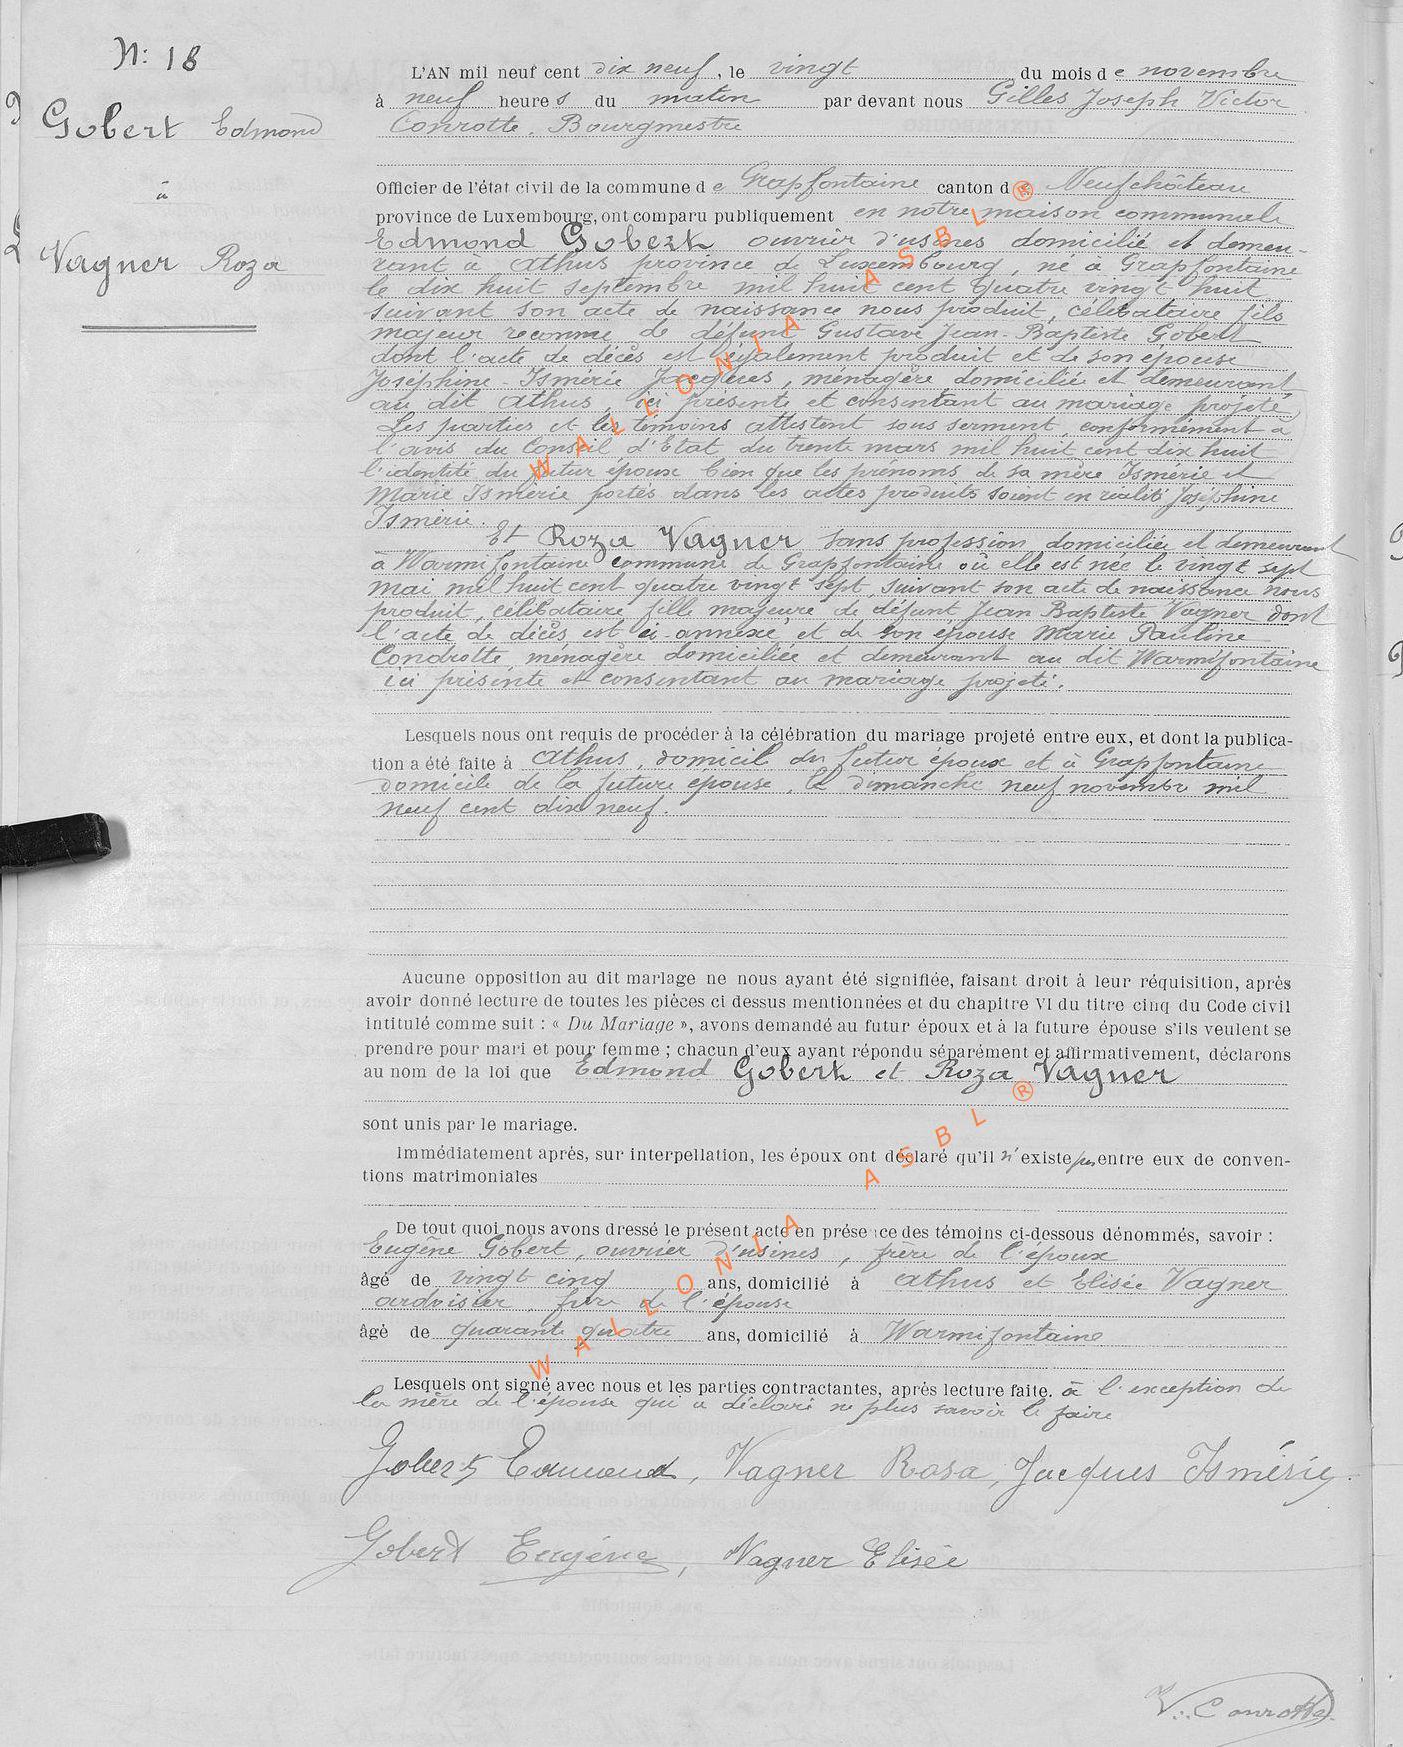 N: 18
Gobert Edmond
à
Vagner Roza
L'AN mil neuf cent dix neuf, le vingt du mois de novembre
à neuf heures du matin par devant nous Gilles Joseph Victor
Conrotte, Bourgmestre
Officier de l'état civil de la commune de Grapfontaine canton de Neufchâteau
province de Luxembourg, ont comparu publiquement en notre maison communale
Edmond Gobert ouvrier d'usines domicilié et demeu-
rant à Athus province de Luxembourg, né à Grapfontaine
le dix huit septembre mil huit cent quatre vingt huit
suivant son acte de naissance nous produit, célibataire fils
majeur reconnu de défunt Gustave Jean-Baptiste Gobert
dont l'acte de décès est également produit et de son épouse
Joséphine-Ismérie Jacques, ménagère domiciliée et demeurant
au dit Athus, ici présente et consentant au mariage projeté,
Les parties et les témoins attestent sous serment, conformément à
l'avis du Conseil d'Etat du trente mars mil huit cent dix huit
l'identité du futur époux bien que les prénoms de sa mère Ismérie et
Marie Ismérie portés dans les actes produits soient en realité Joséphine
Ismérie.
Et Roza Vagner sans profession domiciliée et demeurant
à Warmifontaine commune de Grapfontaine où elle est née le vingt sept
mai mil huit cent quatre vingt sept, suivant son acte de naissance nous
produit, célibataire fille majeure de défunt Jean Baptiste Vagner dont
l'acte de décès est ci-annexé et de son épouse Marie Pauline
Condrotte, ménagère domiciliée et demeurant au dit Warmifontaine
ici présente et consentant au mariage projeté.
Lesquels nous ont requis de procéder à la célébration du mariage projeté entre eux, et dont la publica-
tion a été faite à Athus, domicil du futur époux et à Grapfontaine
domicile de la future epouse, le dimanche neuf novembre mil
neuf cent dix neuf.
Aucune opposition au dit mariage ne nous ayant été signifiée, faisant droit à leur réquisition, après
avoir donné lecture de toutes les pièces ci dessus mentionnées et du chapitre VI du titre cinq du Code civil
intitulé comme suit : « Du Mariage », avons demandé au futur époux et à la future épouse s'ils veulent se
prendre pour mari et pour femme ; chacun d'eux ayant répondu séparément et affirmativement, déclarons
au nom de la loi que Edmond Gobert et Roza Vagner
sont unis par le mariage.
Immédiatement après, sur interpellation, les époux ont déclaré qu'il n'existe pas entre eux de conven-
tions matrimoniales
De tout quoi nous avons dressé le présent acte en présence des témoins ci-dessous dénommés, savoir :
Eugène Gobert, ouvrier d'usines, frère de l'époux
âgé de vingt cinq ans, domicilié à Athus et Elisée Vagner
ardoisier, frère de l'épouse
âgé de quarante quatre ans, domicilié à Warmifontaine
Lesquels ont signé avec nous et les parties contractantes, après lecture faite. à l'exception de
la mère de l'épouse qui a déclaré ne plus savoir le faire
Gobert Edmond, Vagner Rosa, Jacques Ismérie.
Gobert Eugénie, Vagner Elisée
V. Conrotte
WALLONIA ASBL ®
WALLONIA ASBL ®